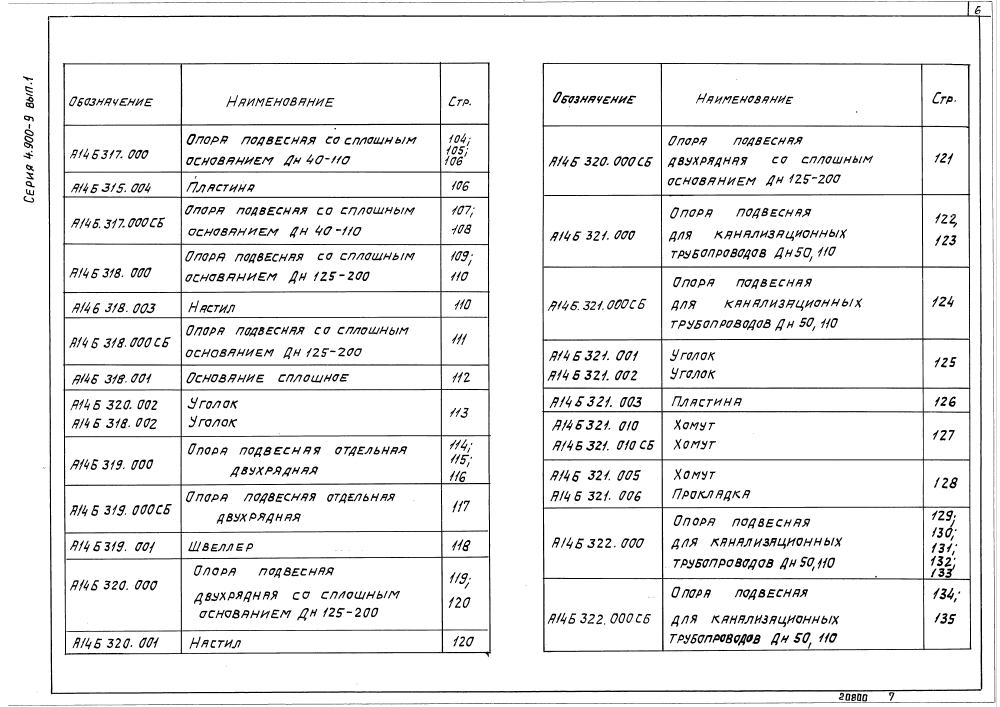 6
Серия 4.900-9 вып.1
Обозначение Наименование Стр.
А14Б317.000 Опора подвесная со сплошным основанием Дн 40-110 104; 105; 106
А14Б315.004 Пластина 106
А14Б.317.000СБ Опора подвесная со сплошным основанием Дн 40-110 107; 108
А14Б 318.000 Опора подвесная со сплошным основанием Дн 125-200 109; 110
А14Б 318.003 Настил 110
А14Б 318.000СБ Опора подвесная со сплошным основанием Дн 125-200 111
А14Б 318.001 Основание сплошное 112
А14Б 320.002 Уголок
А14Б 318.002 Уголок 113
А14Б 319.000 Опора подвесная отдельная двухрядная 114; 115; 116
А14Б 319.000СБ Опора подвесная отдельная двухрядная 117
А14Б319.001 Швеллер 118
А14Б 320.000 Опора подвесная двухрядная со сплошным основанием Дн 125-200 119; 120
А14Б 320.001 Настил 120
Обозначение Наименование Стр.
А14Б 320.000СБ Опора подвесная двухрядная со сплошным основанием Дн 125-200 121
А14Б 321.000 Опора подвесная для канализационных трубопроводов Дн50,110 122, 123
А14Б.321.000СБ Опора подвесная для канализационных трубопроводов Дн 50,110 124
А14Б 321.001 Уголок
А14Б 321.002 Уголок 125
А14Б 321.003 Пластина 126
А14Б 321.010 Хомут
А14Б 321.010СБ Хомут 127
А14Б 321.005 Хомут
А14Б 321.006 Прокладка 128
А14Б 322.000 Опора подвесная для канализационных трубопроводов Дн 50,110 129; 130; 131; 132; 133
А14Б 322.000СБ Опора подвесная для канализационных трубопроводов Дн 50,110 134; 135
20800 7